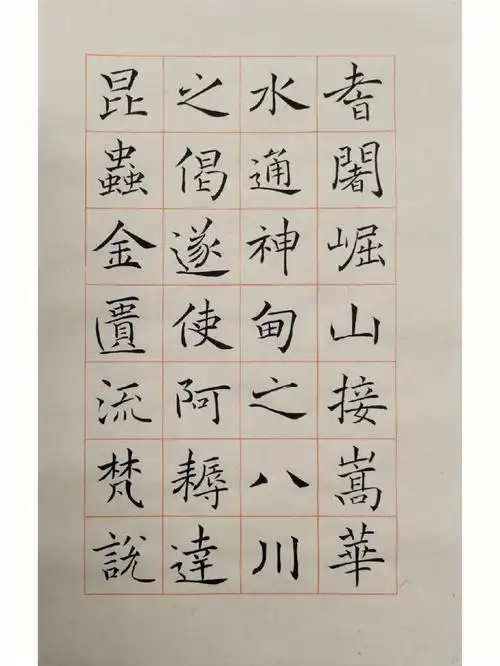 耆闍崛山接嵩華
水通神甸之八川
之偈遂使阿耨達
昆蟲金匱流梵說